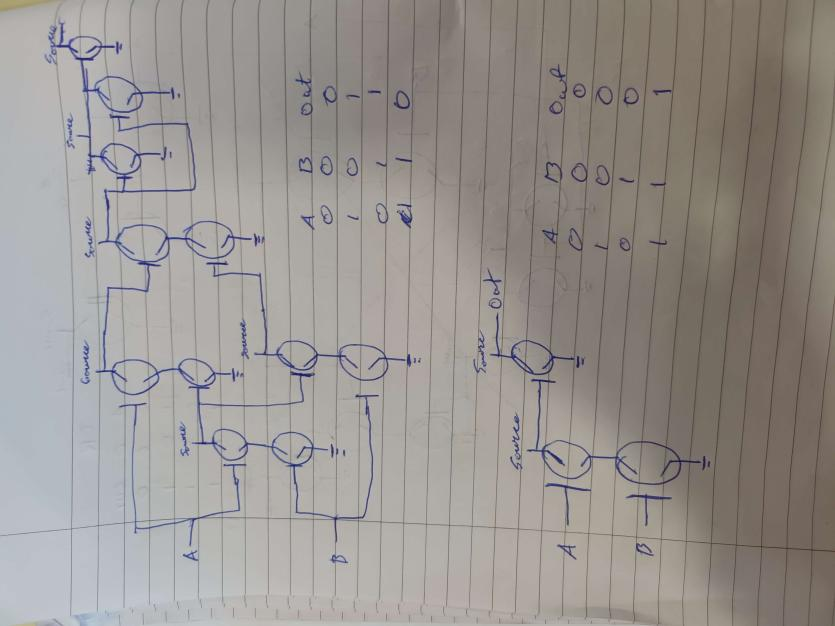 Source
Source
Source
Source
Source
A
Source
B
A B Out
0 0 0
1 0 1
0 1 1
1 1 0
Source
Out
Source
A
B
A B Out
0 0 0
1 0 0
0 1 0
1 1 1